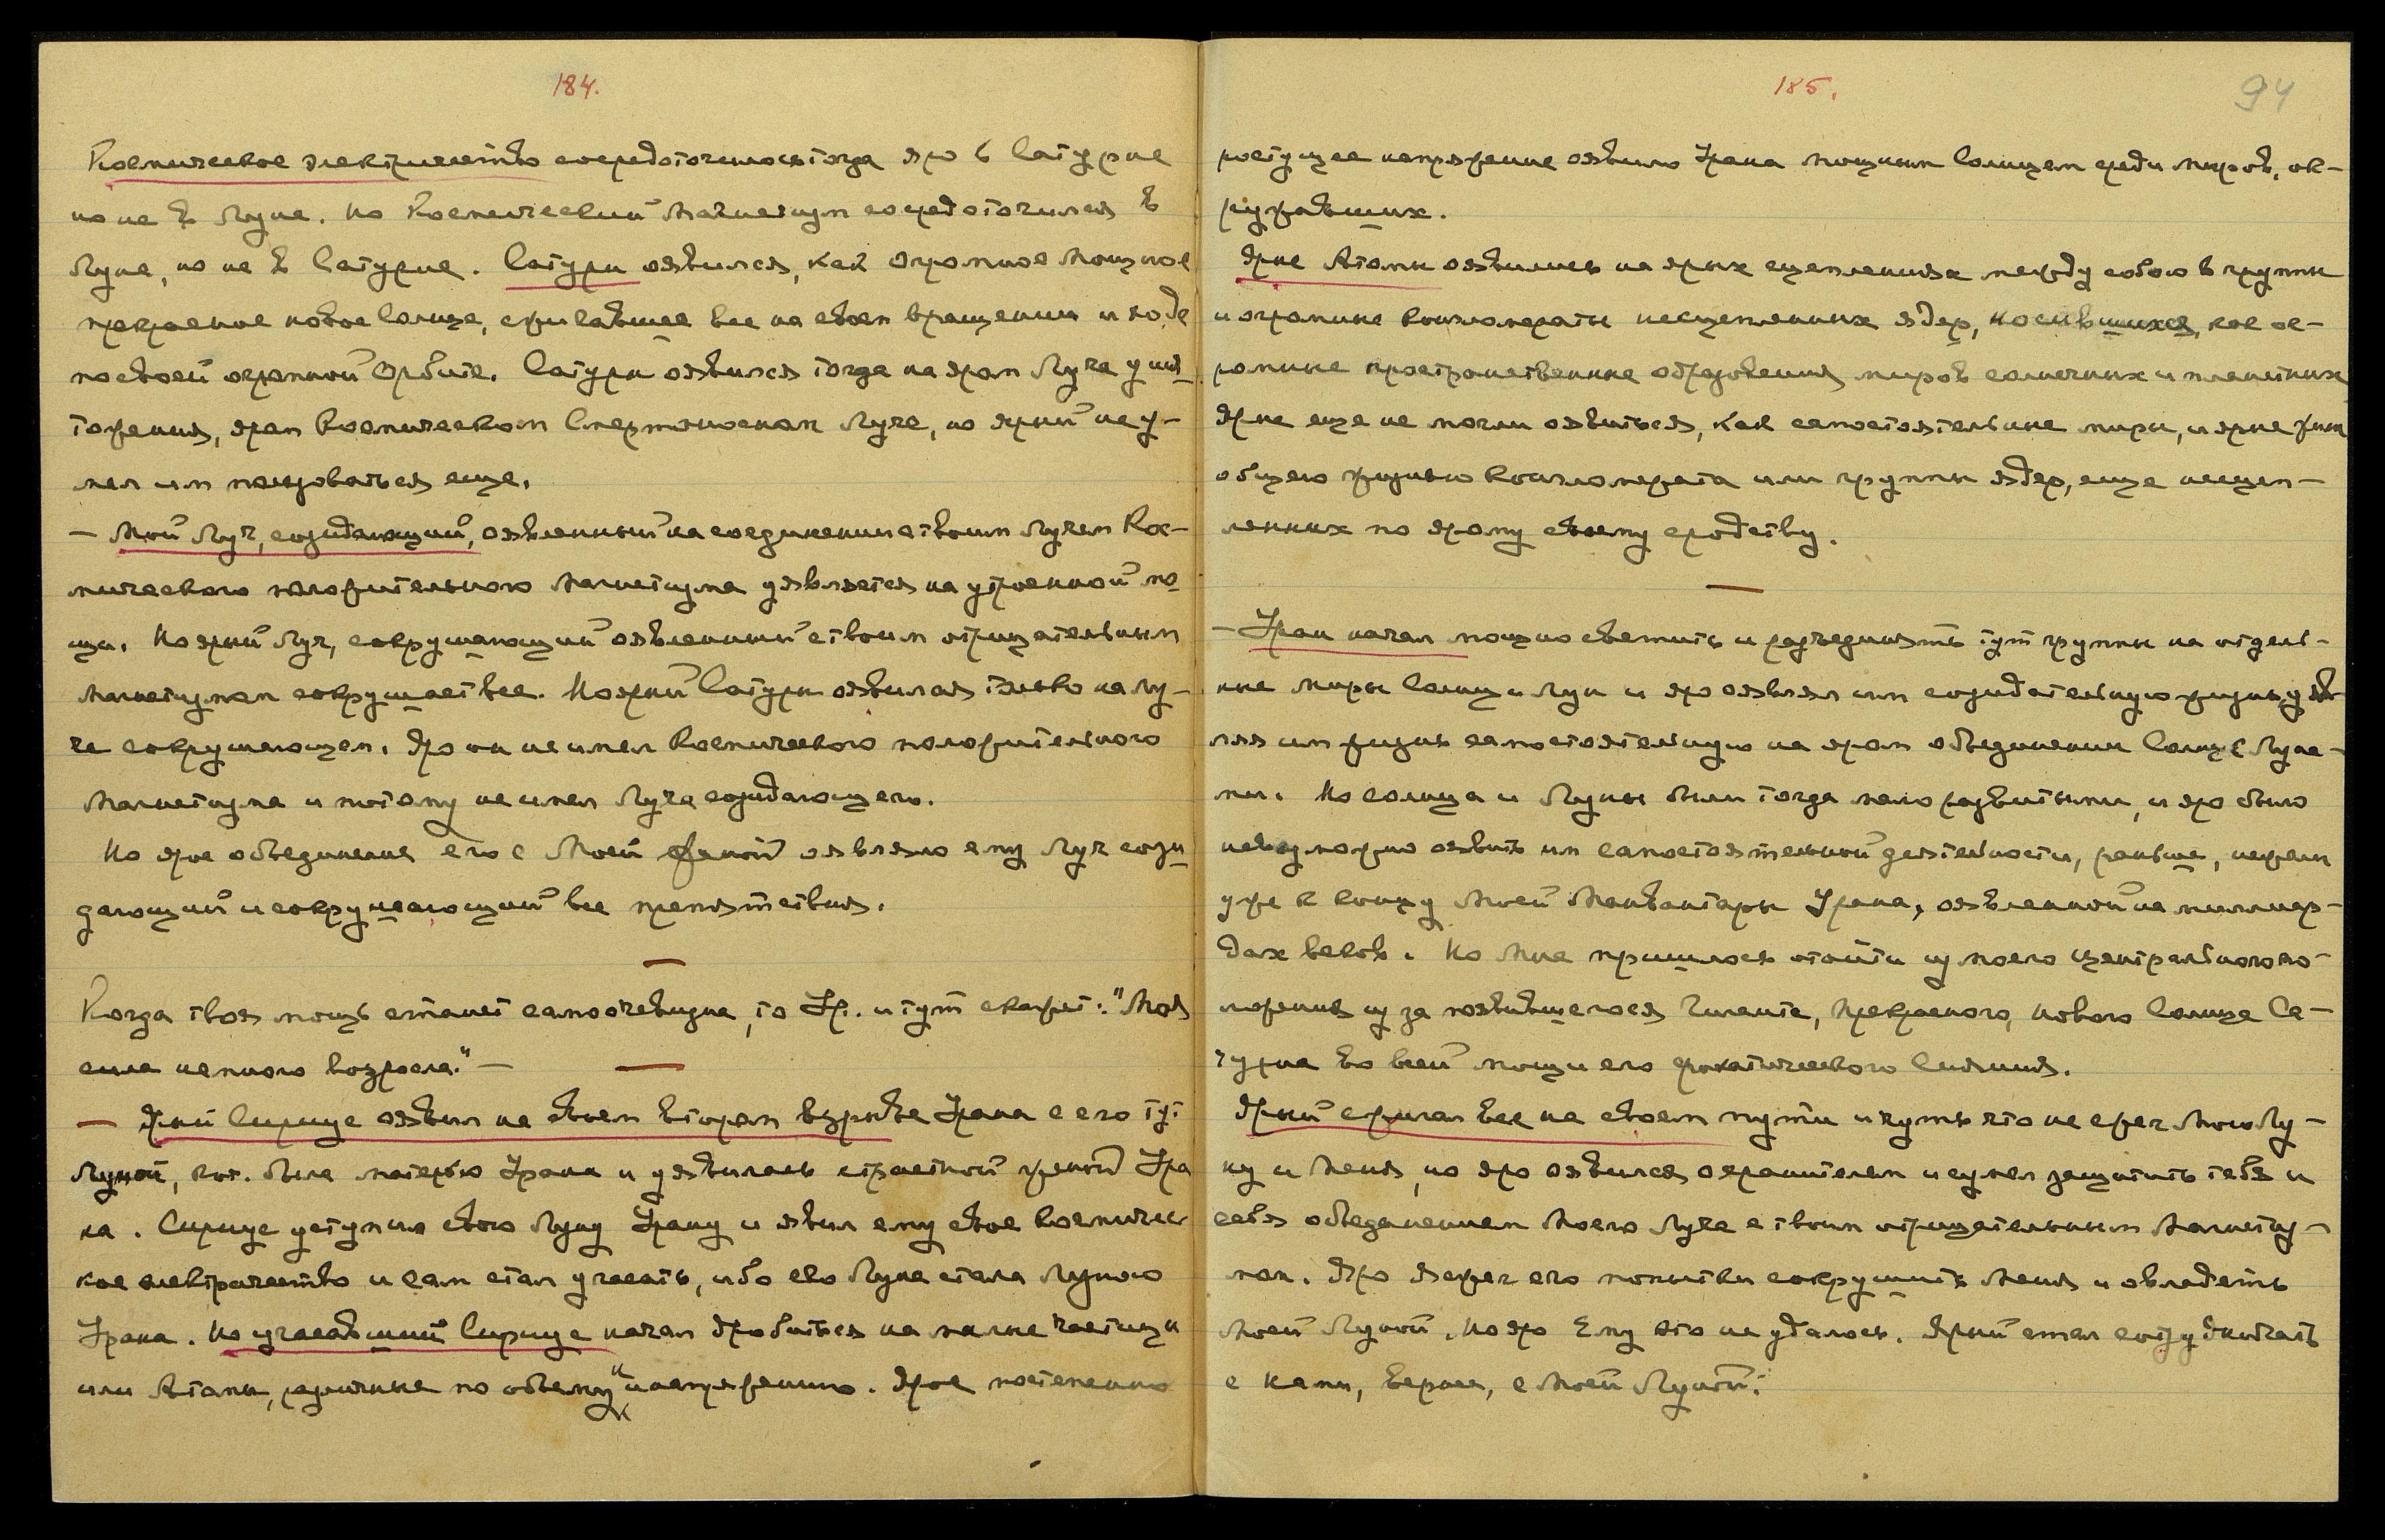 184.
Космическое электричество сосредоточилось тогда яро в Сатурне
но не в Луне. Но Космический Магнетизм сосредоточился в
Луне, но не в Сатурне. Сатурн оявился, как огромное мощное
прекрасное новое Солнце, сжигавшее все на своем вращении и ходе
по своей огромной орбите. Сатурн оявился тогда на яром Луче унич
тожения, яром Космическом Смертоносном Луче, но ярый не у-
мел им пользоваться еще.
— Мой Луч, созидающий, оявленный на соединении с твоим Лучем Кос-
мического положительного Магнетизма уявляется на утроенной мо
щи. Но ярый Луч, сокрушающий оявленный с твоим отрицательным
Магнетизмом сокрушает все. Но ярый Сатурн оявился только на Лу-
че сокрушающем. Яро он не имел Космического положительного
Магнетизма и потому не имел Луча созидающего.
Но ярое объединение его с Моей Женой оявляло ему Луч сози
дающий и сокрушающий все препятствия.
Когда твоя мощь станет самоочевидна, то Ур. и тут скажет: "Моя
сила немного возросла." —
— Ярый Сириус оявил на своем втором взрыве Урана с его
Луной, кот. была матерью Урана и уявилась страстной женой Ура
на. Сириус уступил свою Луну Урану и явил ему свое Космичес
кое электричество и сам стал угасать, ибо его Луна стала Луною
Урана. Но угасавший Сириус начал дробиться на малые частицы
или Атомы, различные по объему и напряжению. Ярое постепенно
185.
94
растущее напряжение оявило Урана мощным Солнцем среди миров, ок-
ружавших.
Ярые Атомы оявились на ярых сцеплениях между собою в группы
и огромные конгломераты несцепленных ядер, носившихся, как ог-
ромные пространственные образования миров солнечных и планетных
Ярые еще не могли оявиться, как самостоятельные миры, и ярые жили
общею жизнью конгломерата или группы ядер, еще несцеп-
ленных по ярому своему сродству.
— Уран начал мощно светить и разъединять тут группы на отдель-
ные миры Солнц и Лун и яро оявлял им созидательную жизнь, уяв
ляя им жизнь самостоятельную на яром объединении Солнц с Луна-
ми. Но солнца и Луны были тогда мало развитыми, и яро было
невозможно оявить им самостоятельной деятельности, раньше, нежели
уже к концу Моей Манвантары Урана, оявленной на миллиар-
дах веков. Но Мне пришлось отойти из моего центрального по-
ложения из за появившегося Гиганта, Прекрасного, нового Солнца Са-
турна во всей мощи его Сияния.
Ярый сжигал все на своем пути и чуть что не сжег Мою Лу-
ну и Меня, но яро оявился охранителем и сумел защитить тебя и
себя объединением Моего Луча с твоим отрицательным Магнетиз-
мом. Яро пресек его попытки сокрушить Меня и овладеть
Моей Луной. Но яро Ему это не удалось. Ярый стал
с нами, вернее, с Моей Луной.